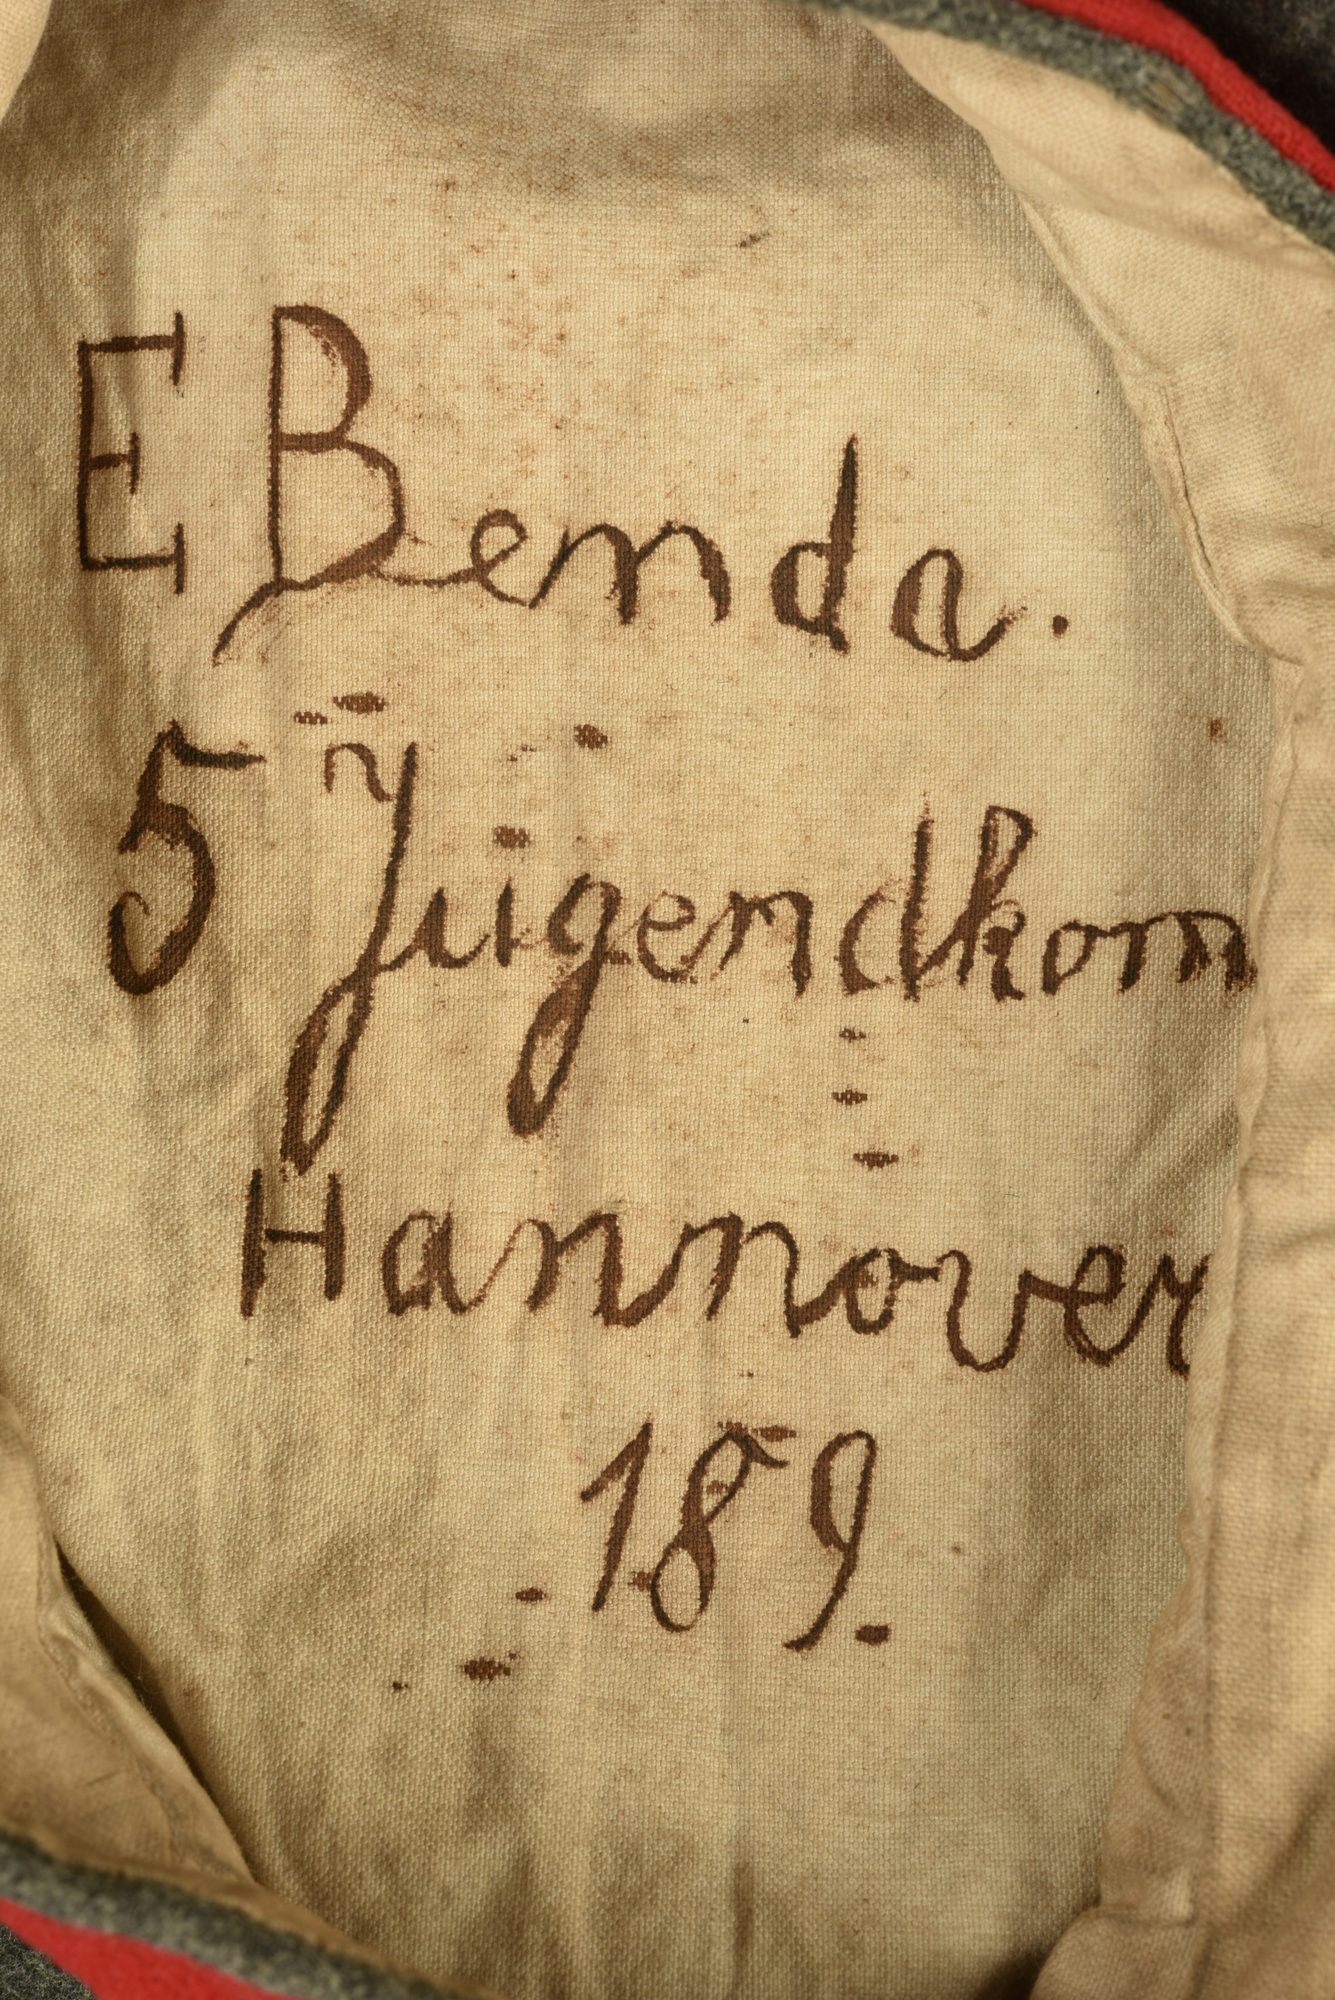 E Benda.
5 Jugendkom
Hannover
189.